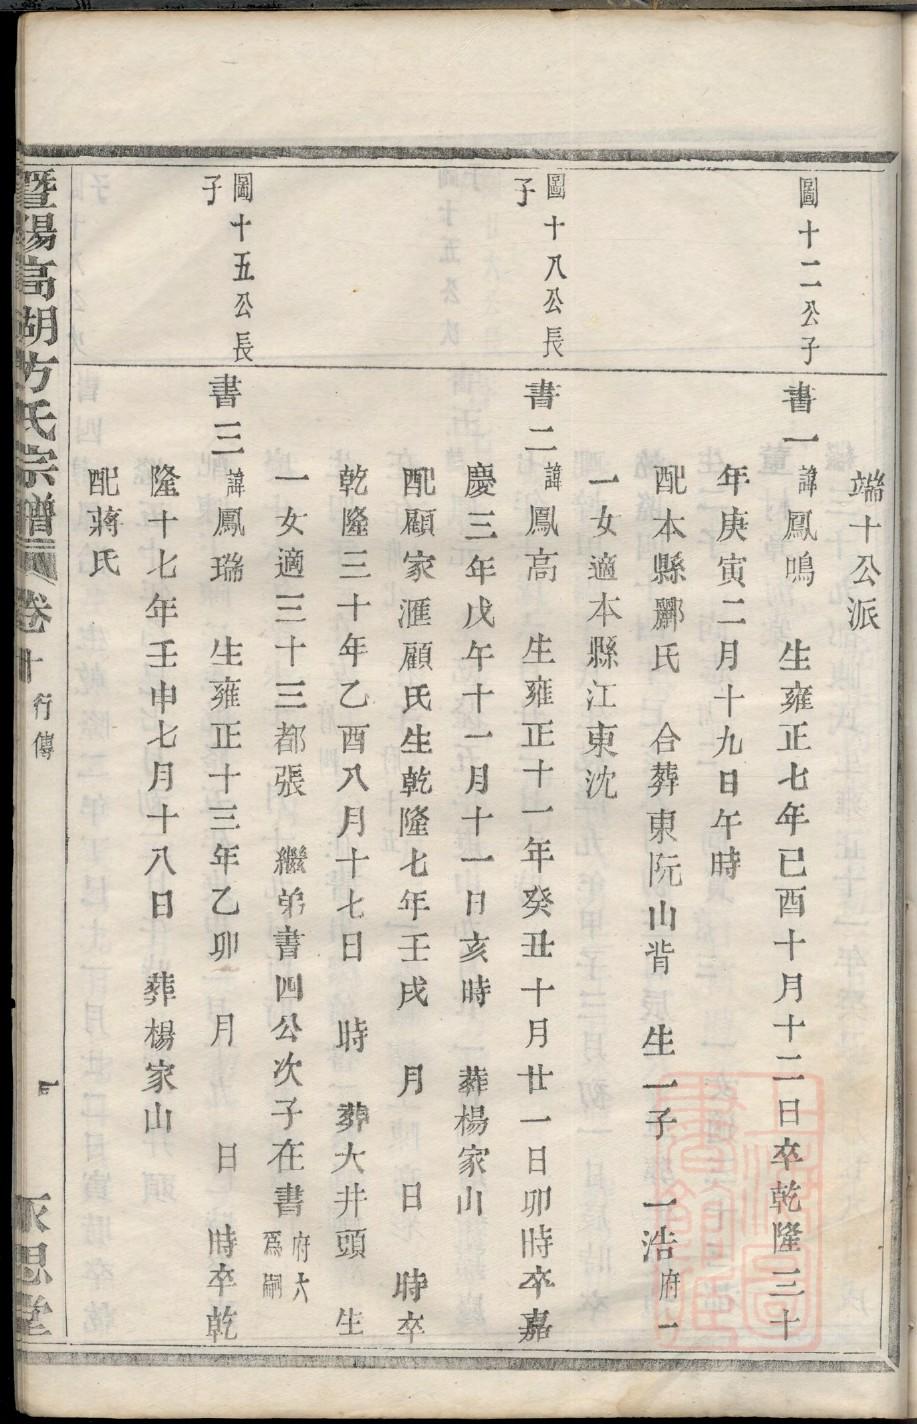 端十公派
圖十二公子
書一諱鳳鳴　生雍正七年已酉十月十二日卒乾隆三十
年庚寅二月十九日午時
配本縣酈氏　合葬東阮山背　生一子　一浩府一
一女適本縣江東沈
圖十八公長
子
書二諱鳳高　生雍正十一年癸丑十月廿一日卯時卒嘉
慶三年戊午十一月十一日亥時　葬楊家山
配顧家滙顧氏生乾隆七年壬戌　月　日　時卒
乾隆三十年乙酉八月十七日　時　葬大井頭　生
一女適三十三都張　繼弟書四公次子在書府六
爲嗣
圖十五公長
子
書三諱鳳瑞　生雍正十三年乙卯　月　日　時卒乾
隆十七年壬申七月十八日　葬楊家山
配蔣氏
暨陽高湖方氏宗譜　卷十　行傳　一　永思堂